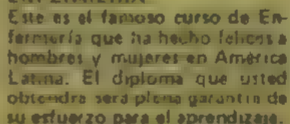 Este es el famoso curso de En-
fermería que ha hecho felices a
hombres y mujeres en América
Latina. El diploma que usted
obtendra será plena garantía de
su esfuerzo para el aprendizaje.